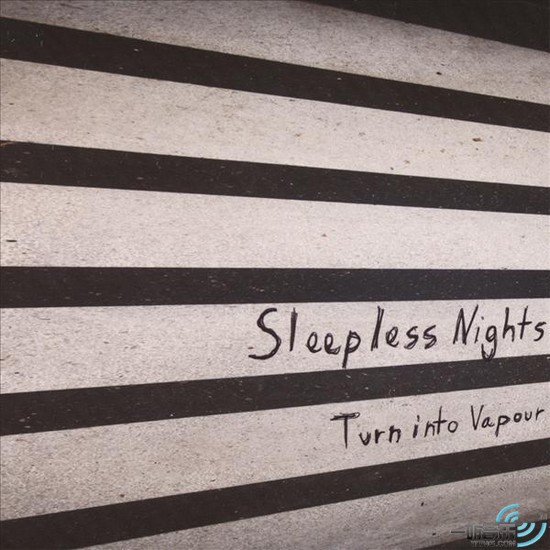 Sleepless Nights
Turn into Vapour